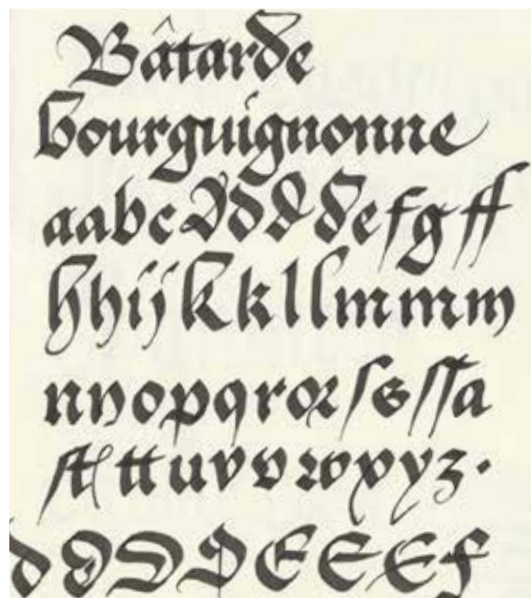 Bâtarde
bourguignonne
aabcddddefgff
hhijkkllmmm
nnopqrorſsſſa
ſtttuvvwxyz.
dDDDEEEf